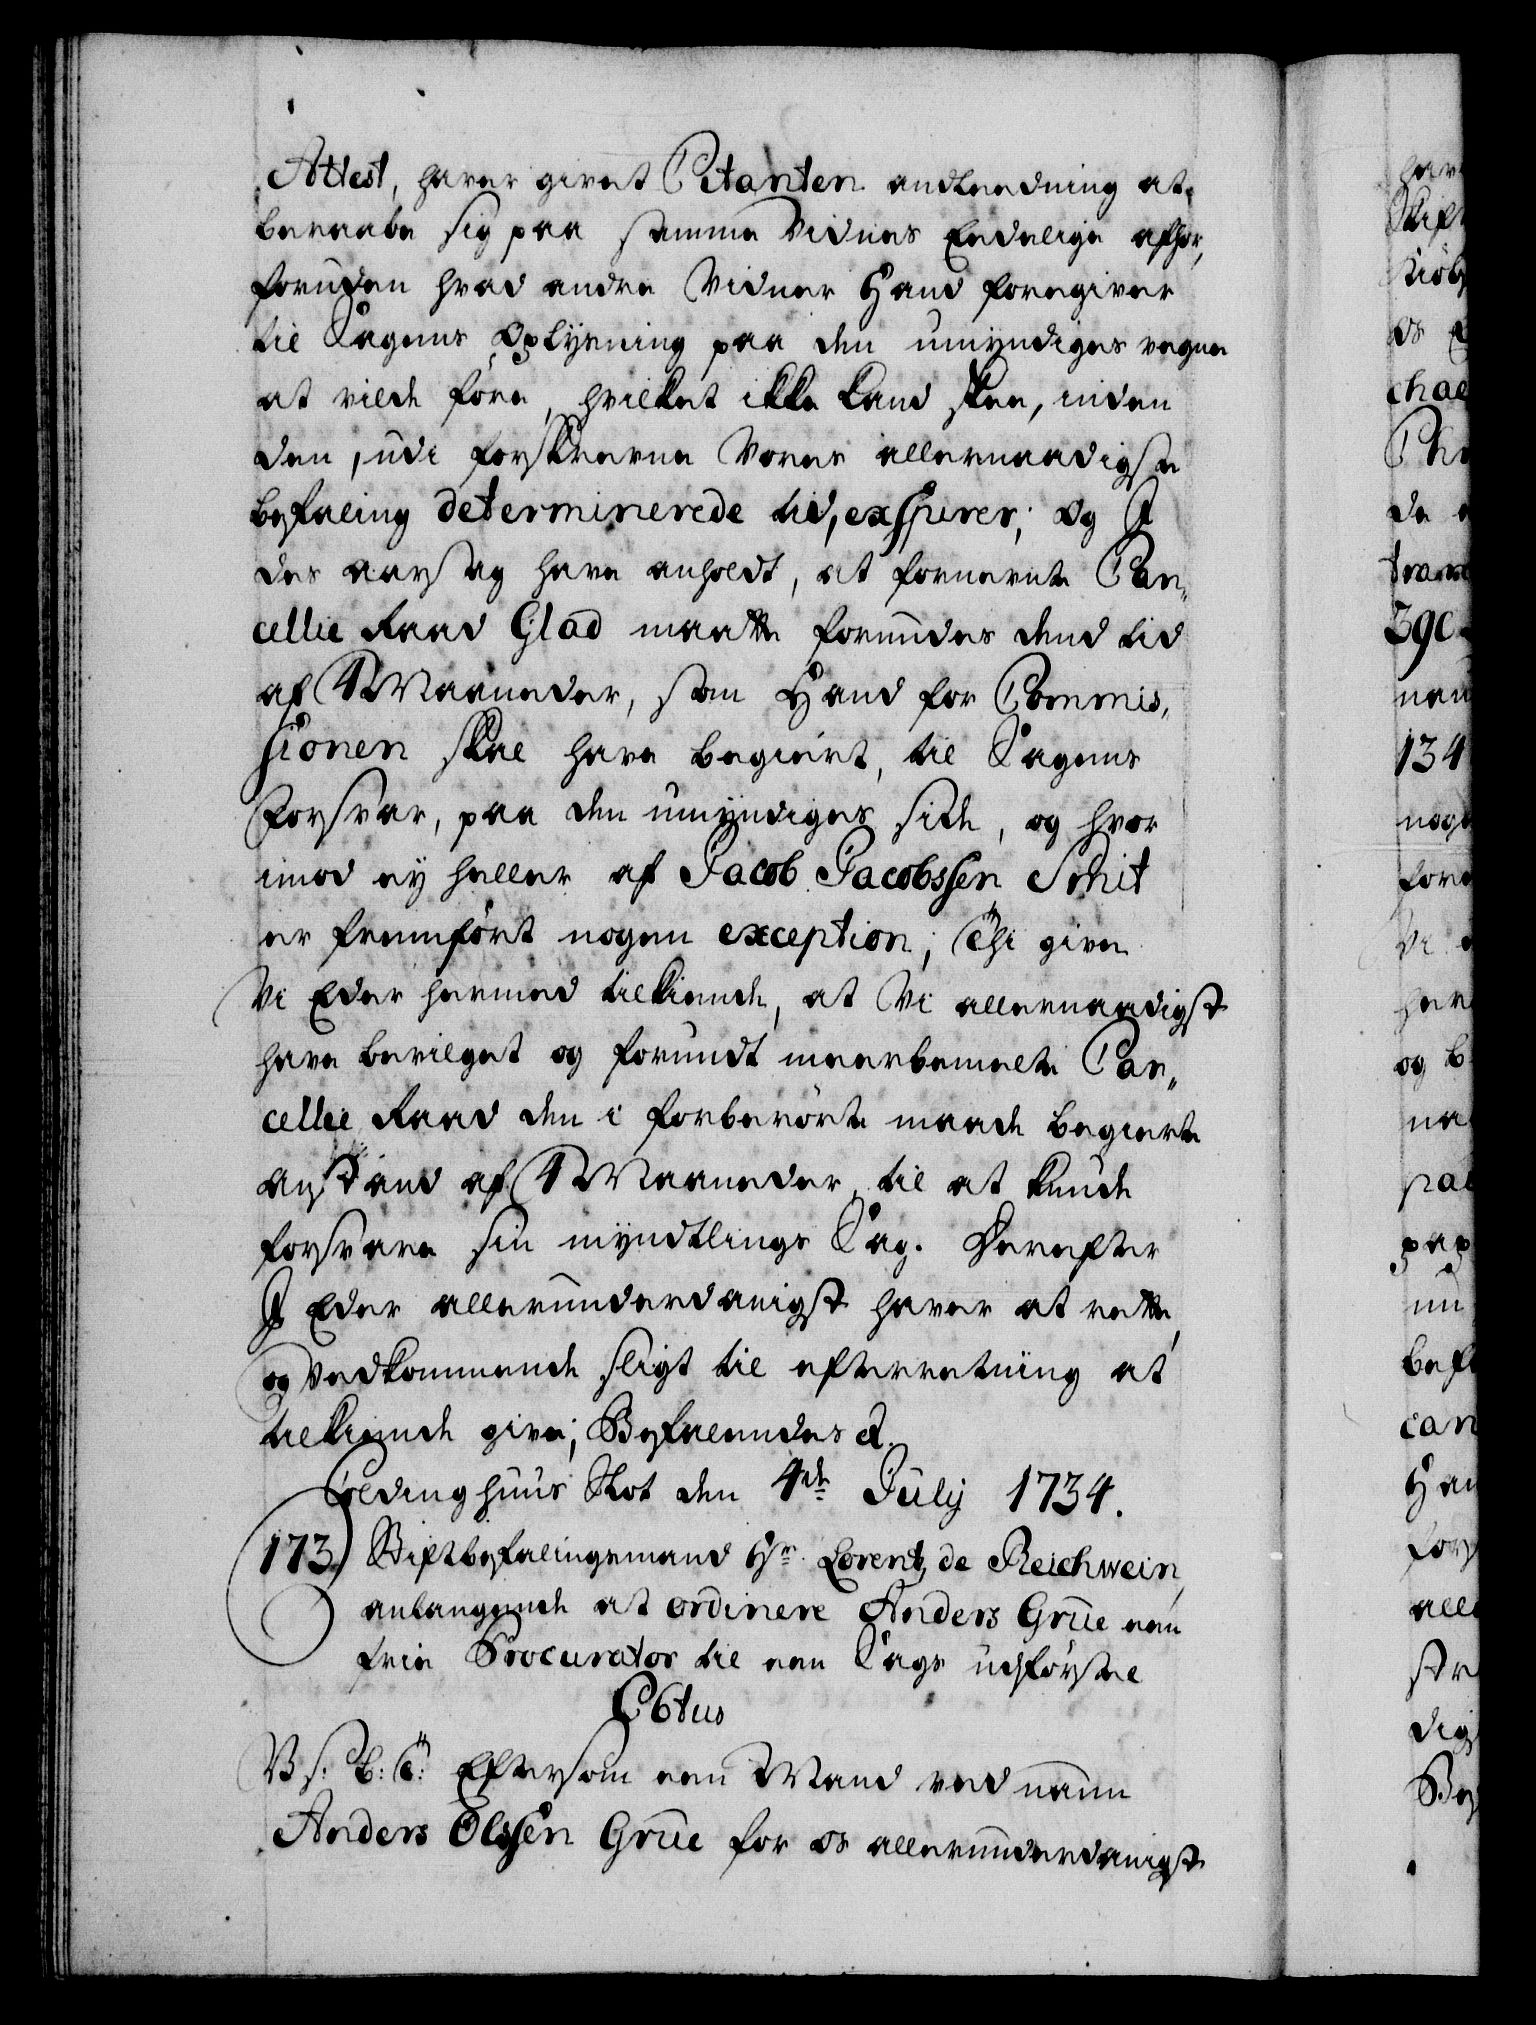 Attest, haver givet Citanten andleedning at
beraabe sig paa samme Vidnes Eedelige afhør,
foruden hvad andre Vidner Hand foregiver
til Sagens Oplysning paa den umyndiges vegne
at vilde føre, hvilket ikke kand skee, inden
den, udi forskrevne Vores allernaadigste
befaling determinerede tid, exspirer; og I
des aarsag have anholdt, at fornevnte Can„
cellie Raad Glad maatte forundes dend tid
af 4 Maaneder, som Hand for Commis„
sionen skal have begiert, til Sagens
Forsvar, paa den umyndiges side, og hvor
imod ey heller af Jacob Jacobssen Smit
er fremført nogen exception; Thi give
Vi Eder hermed tilkiende, at Vi allernaadigst
have bevilget og forundt meerbemelte Can„
cellie Raad den i forberørte maade begierte
anstand af 4 Maaneder til at kunde
forsvare sin myndtlings Sag. Derefter
I Eder allerunderdanigst haver at rette,
og Vedkommende sligt til efterretning at
tilkiende give; Befalendes &.
Coldinghuus Slot den 4de July 1734.
173) Stiftbefalingsmand Hr. Lorentz de Reichwein,
anlangende at ordinere Anders Grüe een
frie Procurator til een Sags udførsel
C6tus
V s: B: T: Eftersom een Mand ved nafn
Anders Olssen Grüe for os allerunderdanigst